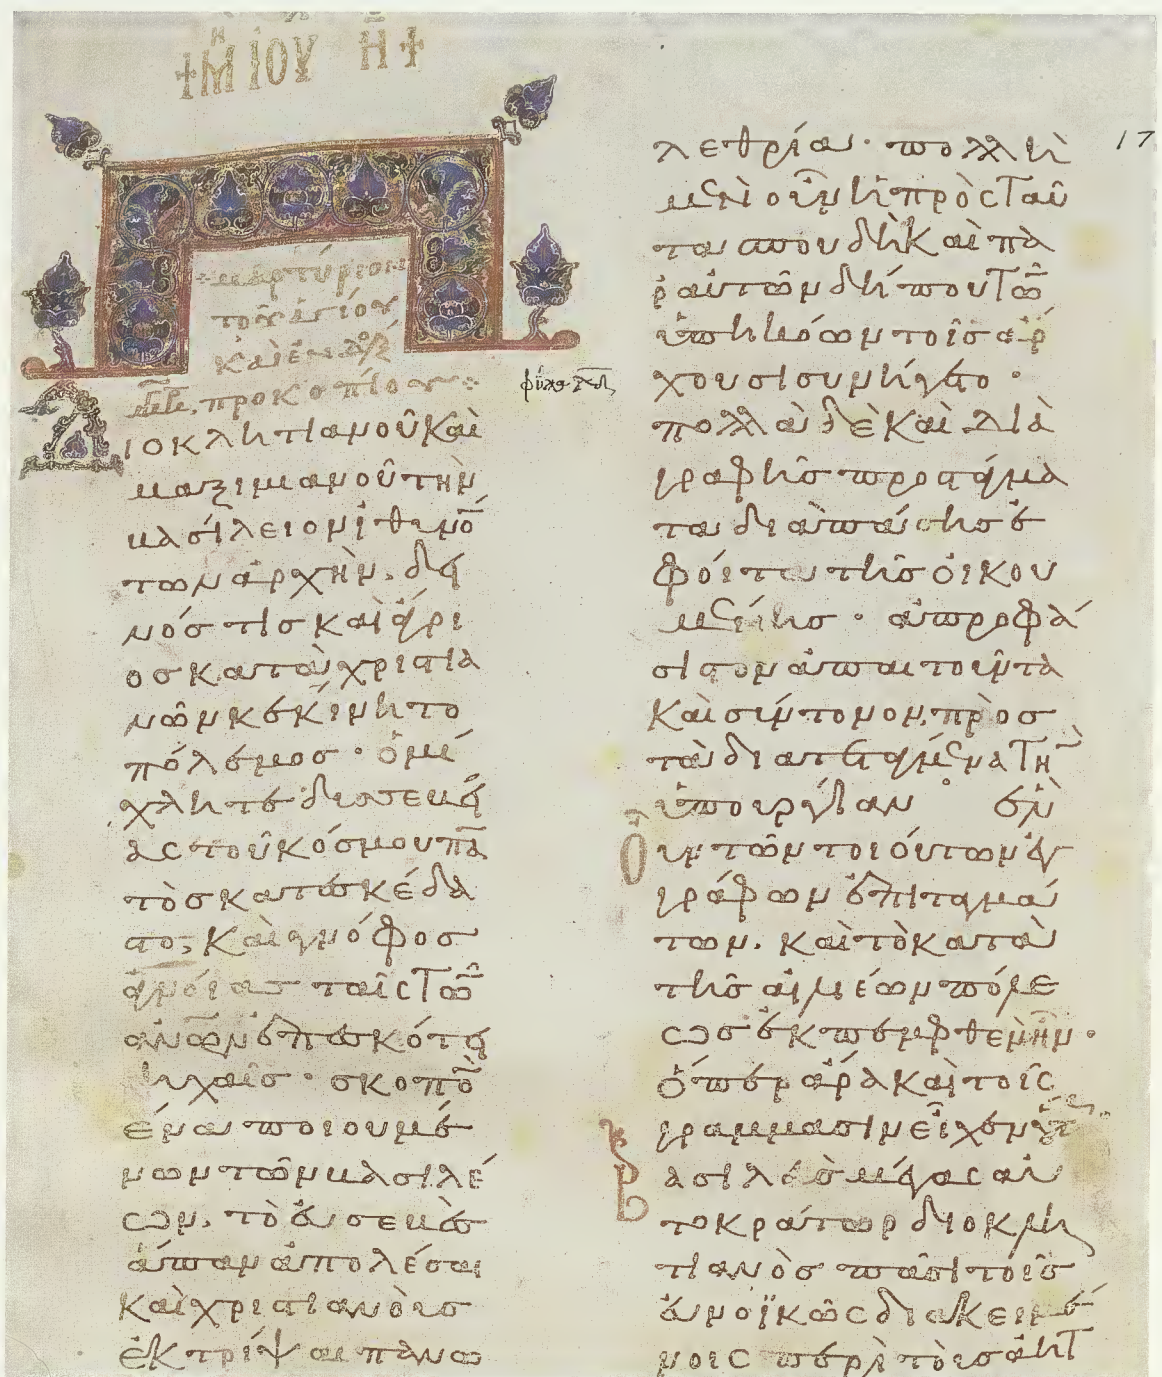 + Μη ΙΟΥ Η +
μαρτύριον
τοῦ ἁγίου
καὶ ἐνδόξ
μεγ προκοπίου
Διοκλητιανοῦ καὶ
μαξιμιανοῦ τὴν
βασίλειον ἰθυνόν
των ἀρχὴν. δει
νός τις καὶ ἄγρι
ος κατὰ χριστια
νῶν κεκίνητο
πόλεμος· ὁμί
χλη τε δυσσεβεί
ας τοῦ κόσμου πα
τὸς κατεσκέδα
στο, καὶ γνόφος
ἀνοίας ταῖς τῶν
ανῶν ἐπεσκότει
ψυχαῖς· σκοπὸν
ἕνα ποιουμέ
νων τῶν βασιλέ
ων. τὸ εὐσεβὲς
ἅπαν ἀπολέσαι
καὶ χριστιανοὺς
ἐκτρίψαι πανω
17
λεθρίαν· πολλὴ
μὲν οὖν ἡ πρὸς ταῦ
τα σπουδὴ καὶ πα
ρ αὐτῶν δήπου τῶν
ὑπηκόων τοῖς ἄρ
χουσι συνήγετο·
πολλὰ δὲ καὶ διὰ
γραφῆς προστάγμα
τα διὰ πάσης ἐ
φοίτα τῆς οἰκου
μένης· ἀπροφά
σιστον ἀπαιτοῦντα
καὶ σύντομον, πρὸς
τὰ διατεταγμένα τὴν
ὑπουργίαν ἐν
οὖν τῶν τοιούτων ἐγ
γράφων ἐπιταγμά
των. καὶ τὸ κατὰ
τῆς αἰλιέων πόλε
ως ἐκπεμφθὲν ἦν·
ὅπερ ἄρα καὶ τοῖς
γράμμασιν εἶχεν οὕτ
βασιλεὺς μέγας αὐ
τοκράτωρ διοκλη
τιανὸς πᾶσι τοῖς
εὐνοϊκῶς διακειμέ
νοις περὶ τοὺς ἀητ